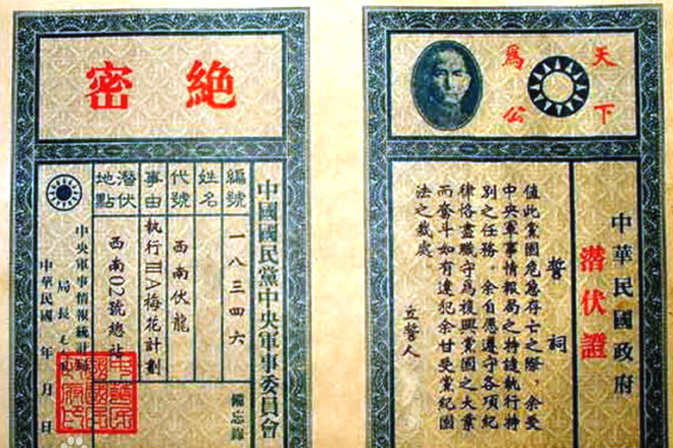 天下
為公
中華民國政府
潛伏證
誓詞
值此黨國危急存亡之際，余受
中央軍事情報局之特諉執行特
別之任務。余自愿遵守各項紀
律恪盡職守爲復興黨国之大業
而奮斗如有違犯余甘受黨紀國
法之裁處。
立誓人
絕密
中國國民黨中央軍事委員會
備忘錄
編號 一八三四六
姓名
代號 西南伏龍
事由 執行ⅢA梅花計劃
潛伏地點 西南02號總站
中央軍事情報統計
局長毛
中華民國 年 月 日